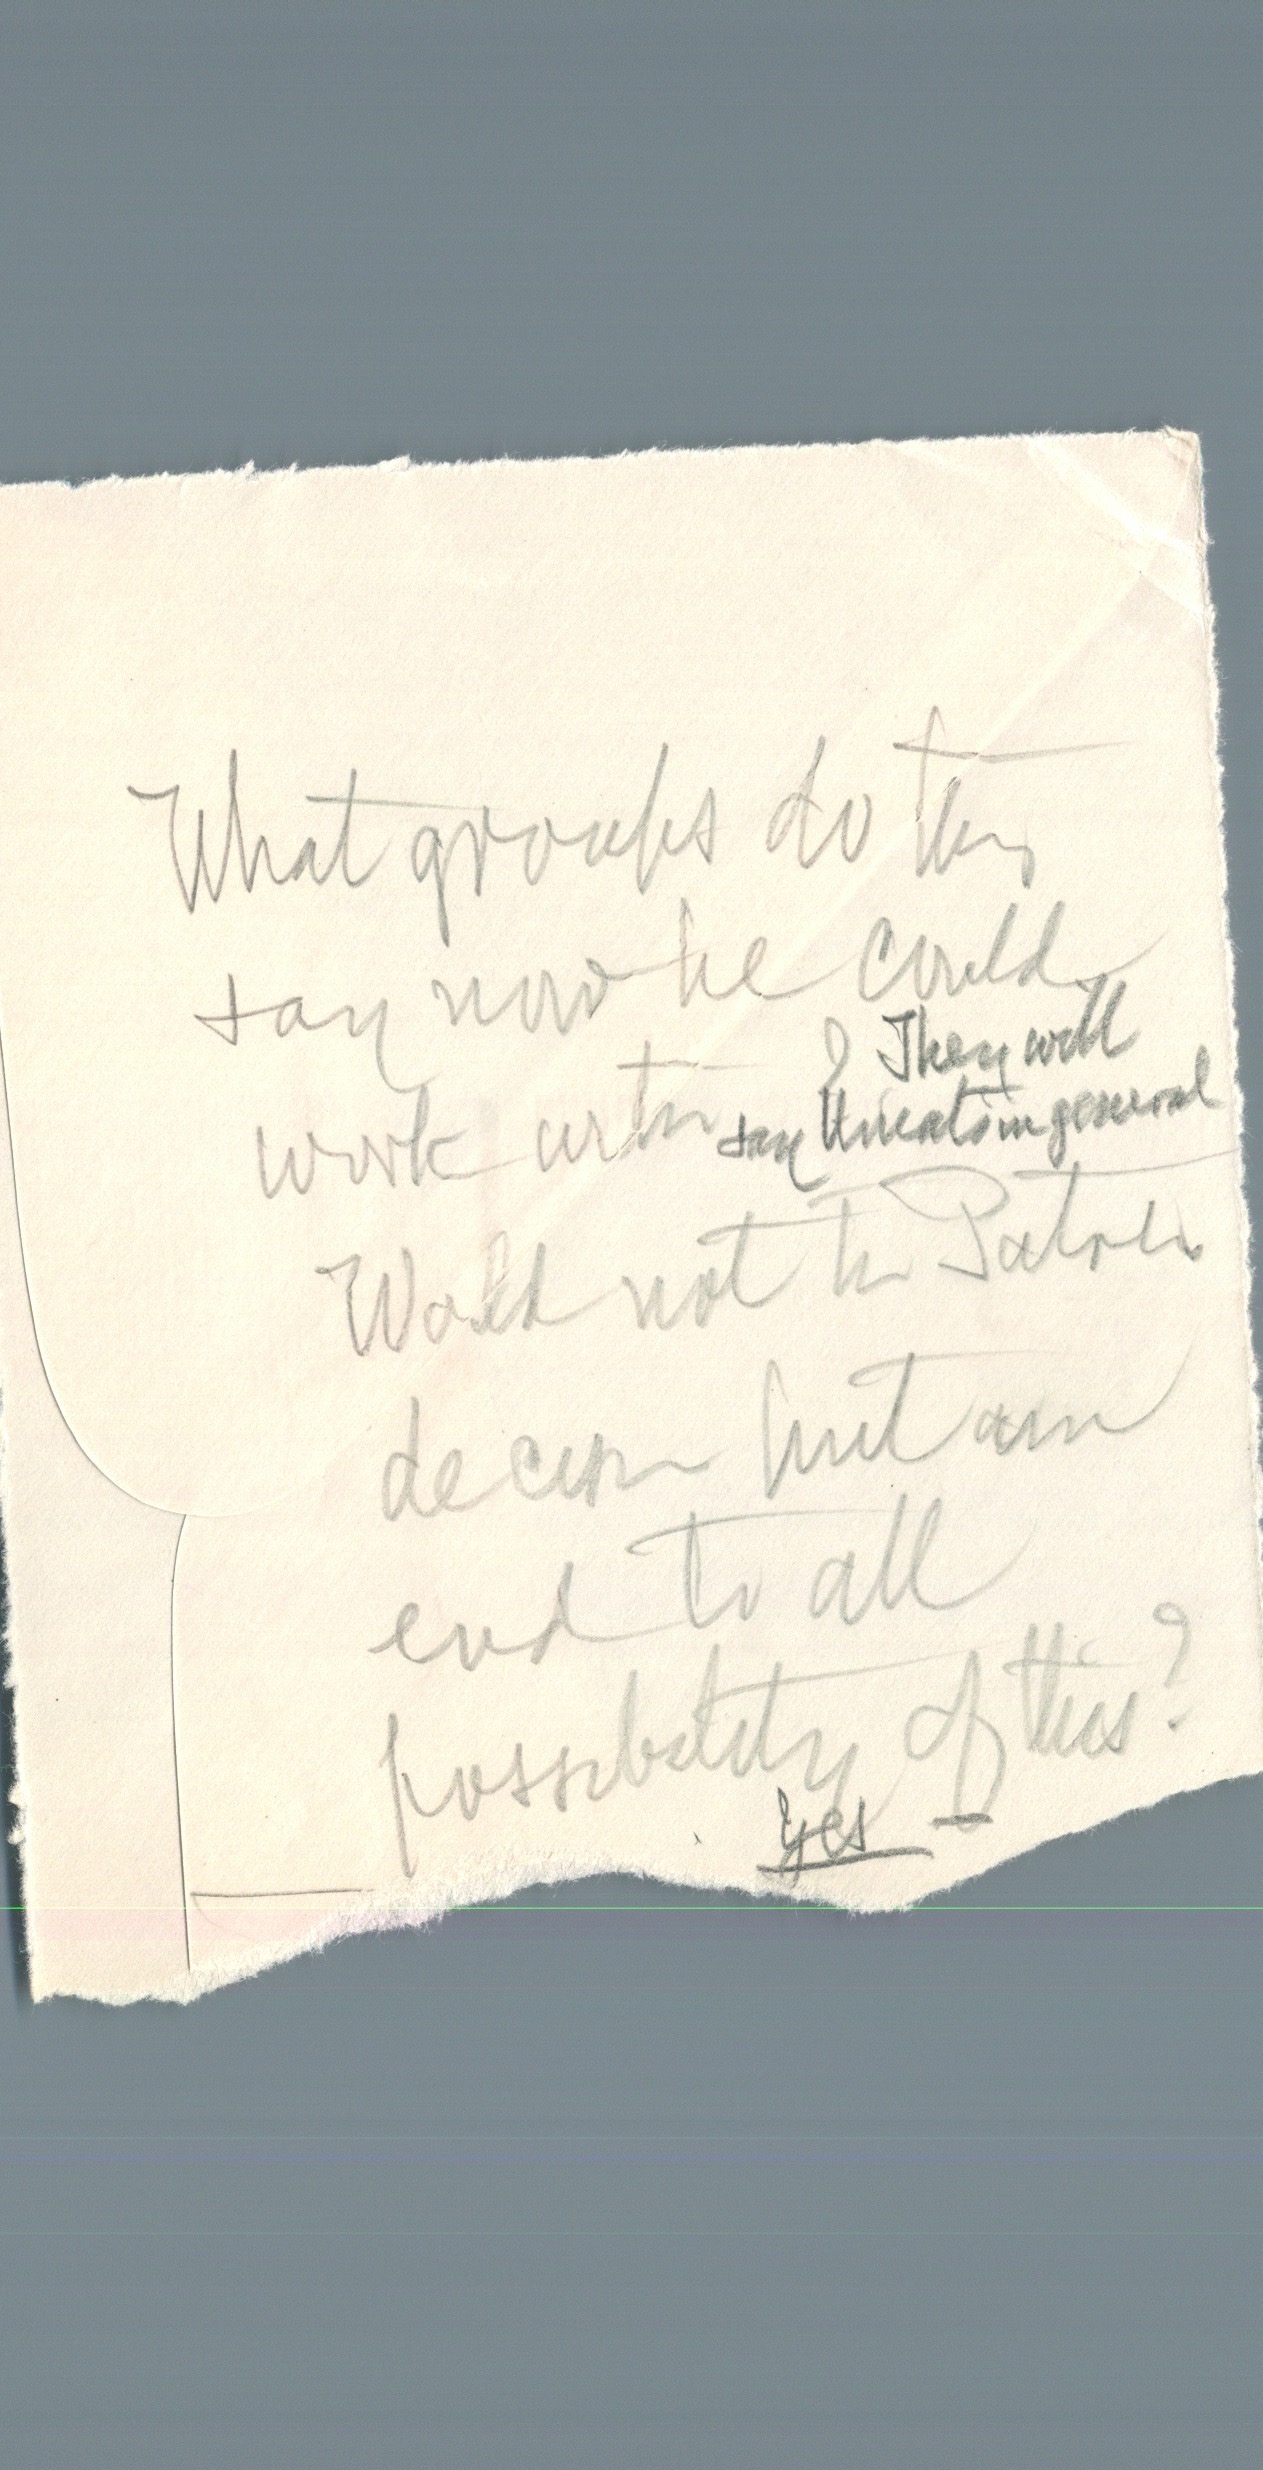 What groups do they
say now he could
work with ? They will
say threats in general
Would not the
decision put an
end to all
possibility of this?
Yes —